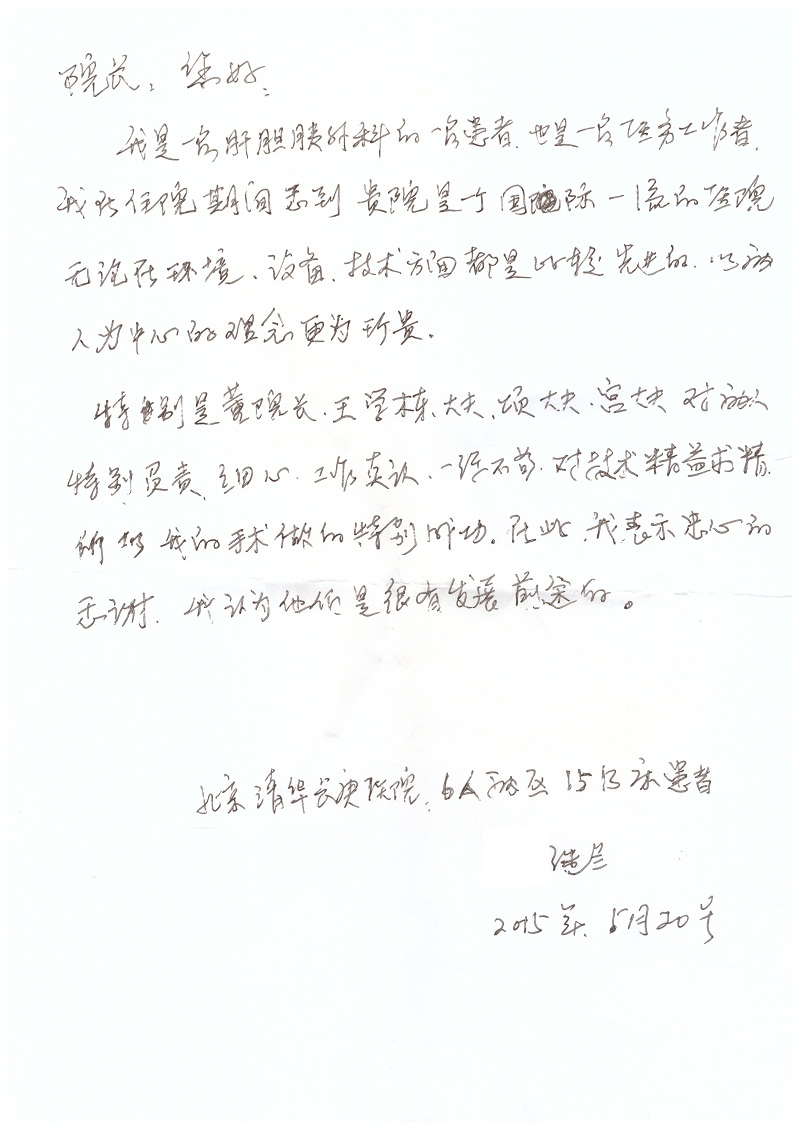 院长：您好：
我是一名肝胆胰外科的一名患者，也是一名医务工作者，
我在住院期间感到贵院是个国际一流的医院
无论在环境、设备、技术方面都是比较先进的，以病
人为中心的理念更为珍贵。
特别是董院长、王学栋大夫、项大夫、宫大夫对病人
特别负责、细心、工作真认、一丝不苟，对技术精益求精，
所以我的手术做的特别成功。在此，我表示衷心的
感谢，我认为他们是很有发展前途的。
北京清华长庚医院，6A病区15号床患者
2015年、5月20号